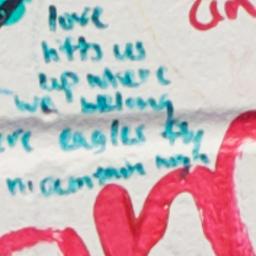 love
lifts us
up where
we belong
ere eagles fly
mountain
an